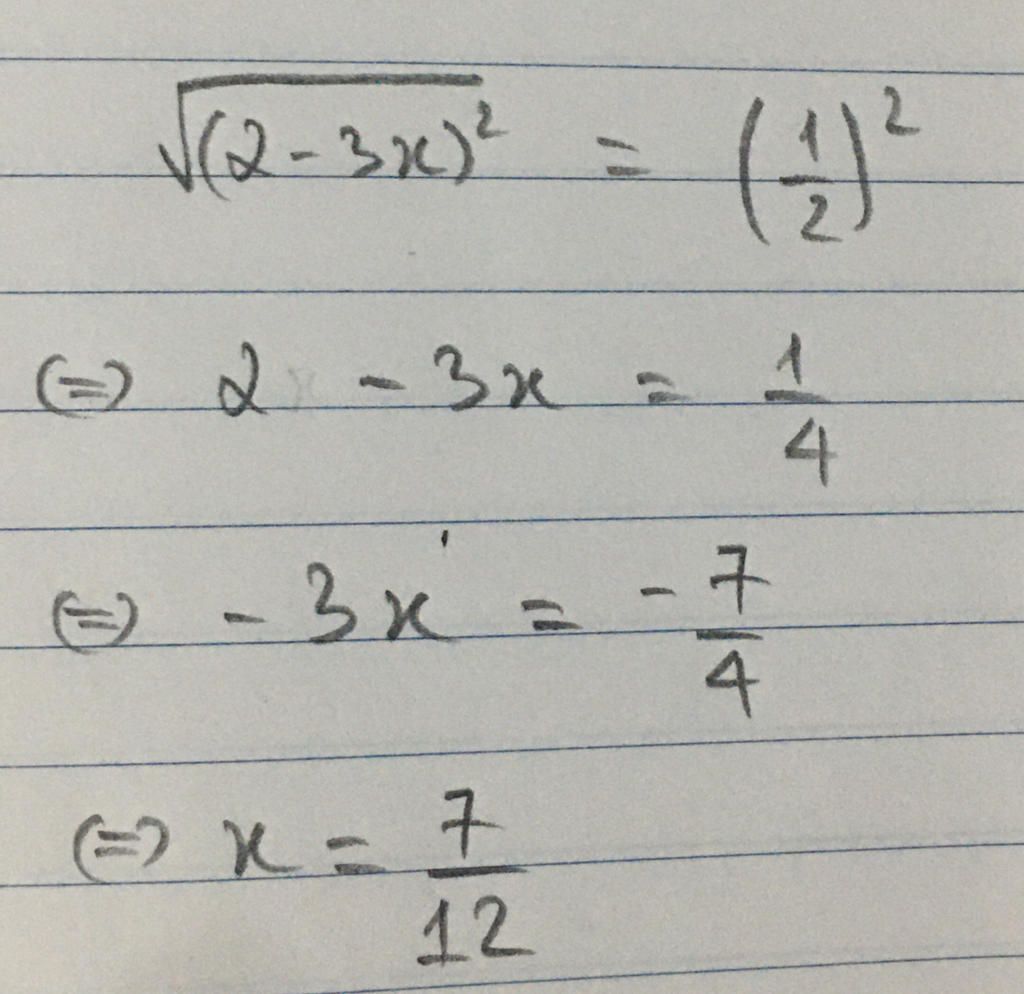 √(2-3x)² = (1/2)²
(=) 2 - 3x = 1/4
(=) - 3x = - 7/4
(=) x = 7/12